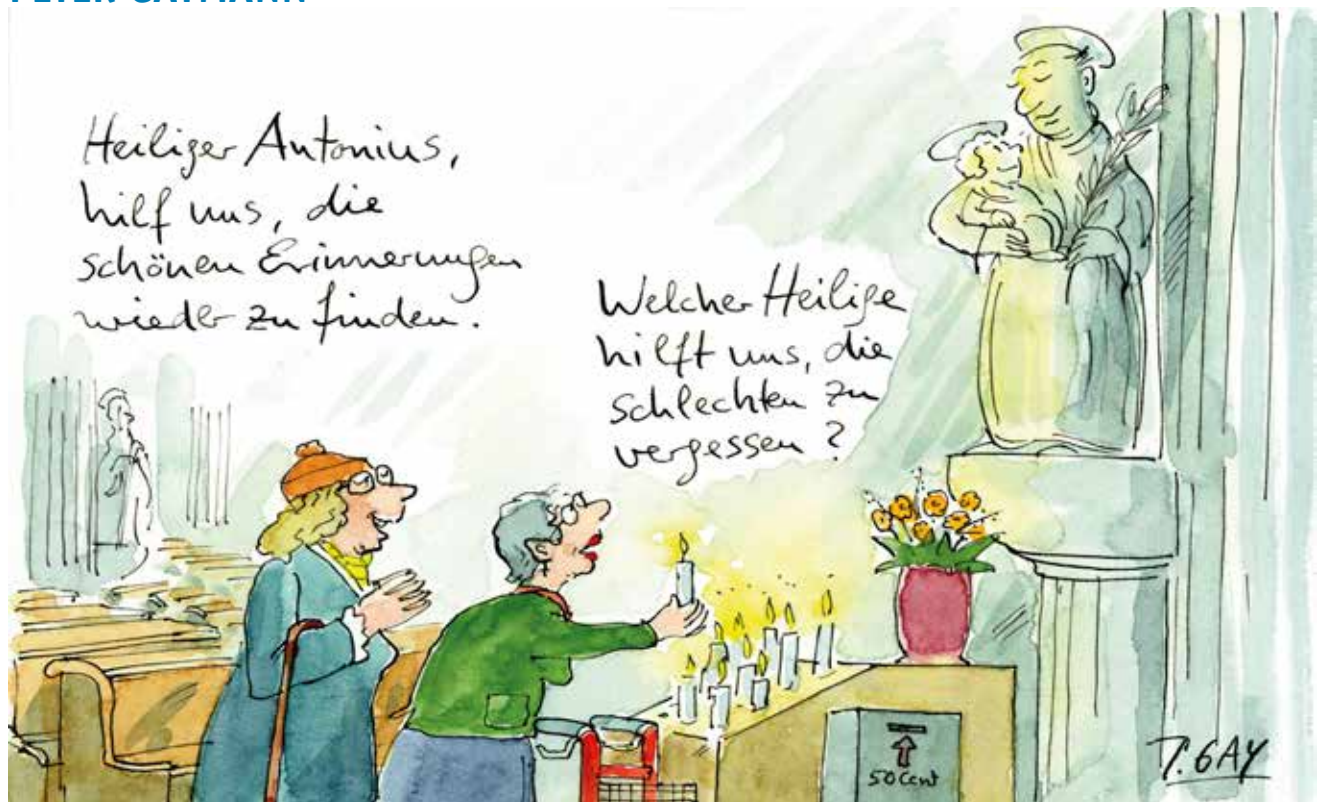 Heiliger Antonius,
hilf uns, die
schönen Erinnerungen
wieder zu finden.
Welcher Heilige
hilft uns, die
schlechten zu
vergessen?
50 Cent
P. GAY